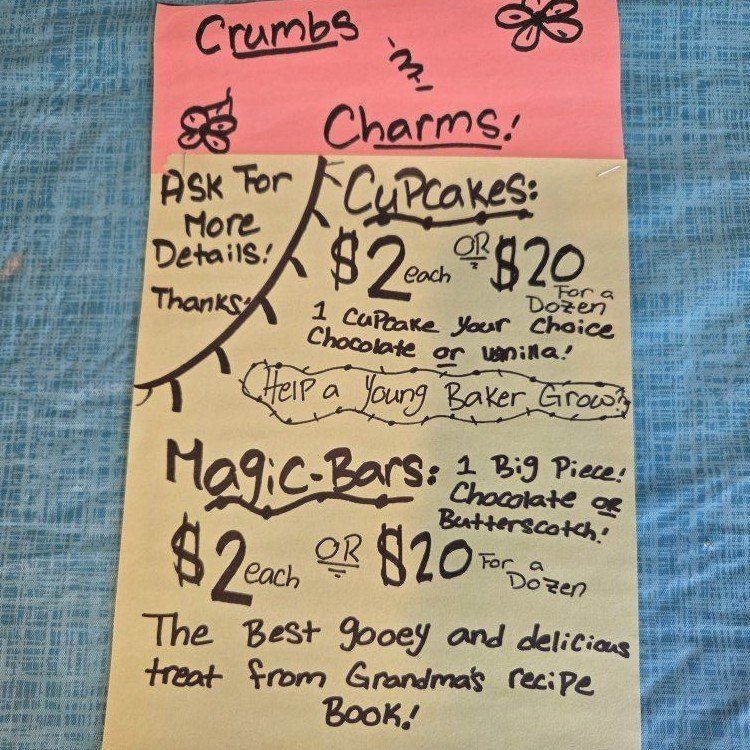 Crumbs
'n'
Charms!
Ask For
More
Details!
Thanks!
Cupcakes:
$2 each OR $20
For a
Dozen
1 Cupcake your choice
Chocolate or vanilla!
Help a Young Baker Grow?
Magic-Bars: 1 Big Piece!
Chocolate or
Butterscotch!
$2 each OR $20 For a
Dozen
The Best gooey and delicious
treat from Grandma's recipe
Book!